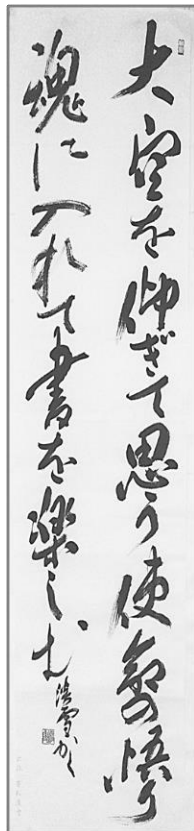 大空を仰ぎて思う使命の悟り
魂に入れて書を楽しむ
雪かく